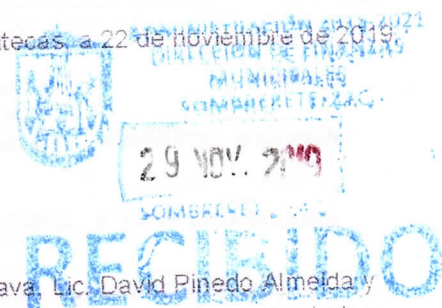 tecas, a 22 de noviembre de 2019.
ADMINISTRACIÓN 2018-2021
DIRECCIÓN DE FINANZAS
MUNICIPALES
SOMBRERETE, ZAC.
29 NOV. 2019
SOMBRERETE, ZAC
RECIBIDO
ava, Lic. David Pinedo Almeida y